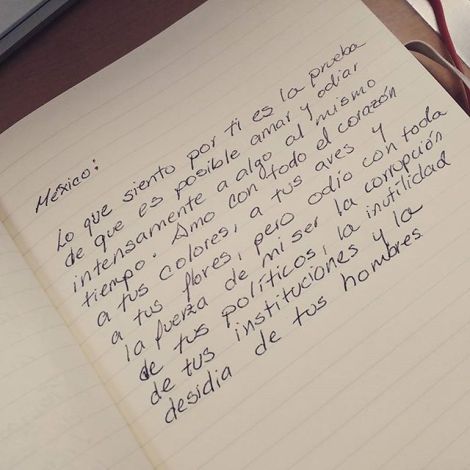 México:
Lo que siento por ti es la prueba
de que es posible amar y odiar
intensamente a algo al mismo
tiempo. Amo con todo el corazón
a tus colores, a tus aves y
a tus flores, pero odio con toda
la fuerza de mi ser la corrupción
de tus políticos, la inutilidad
de tus instituciones y la
desidia de tus hombres